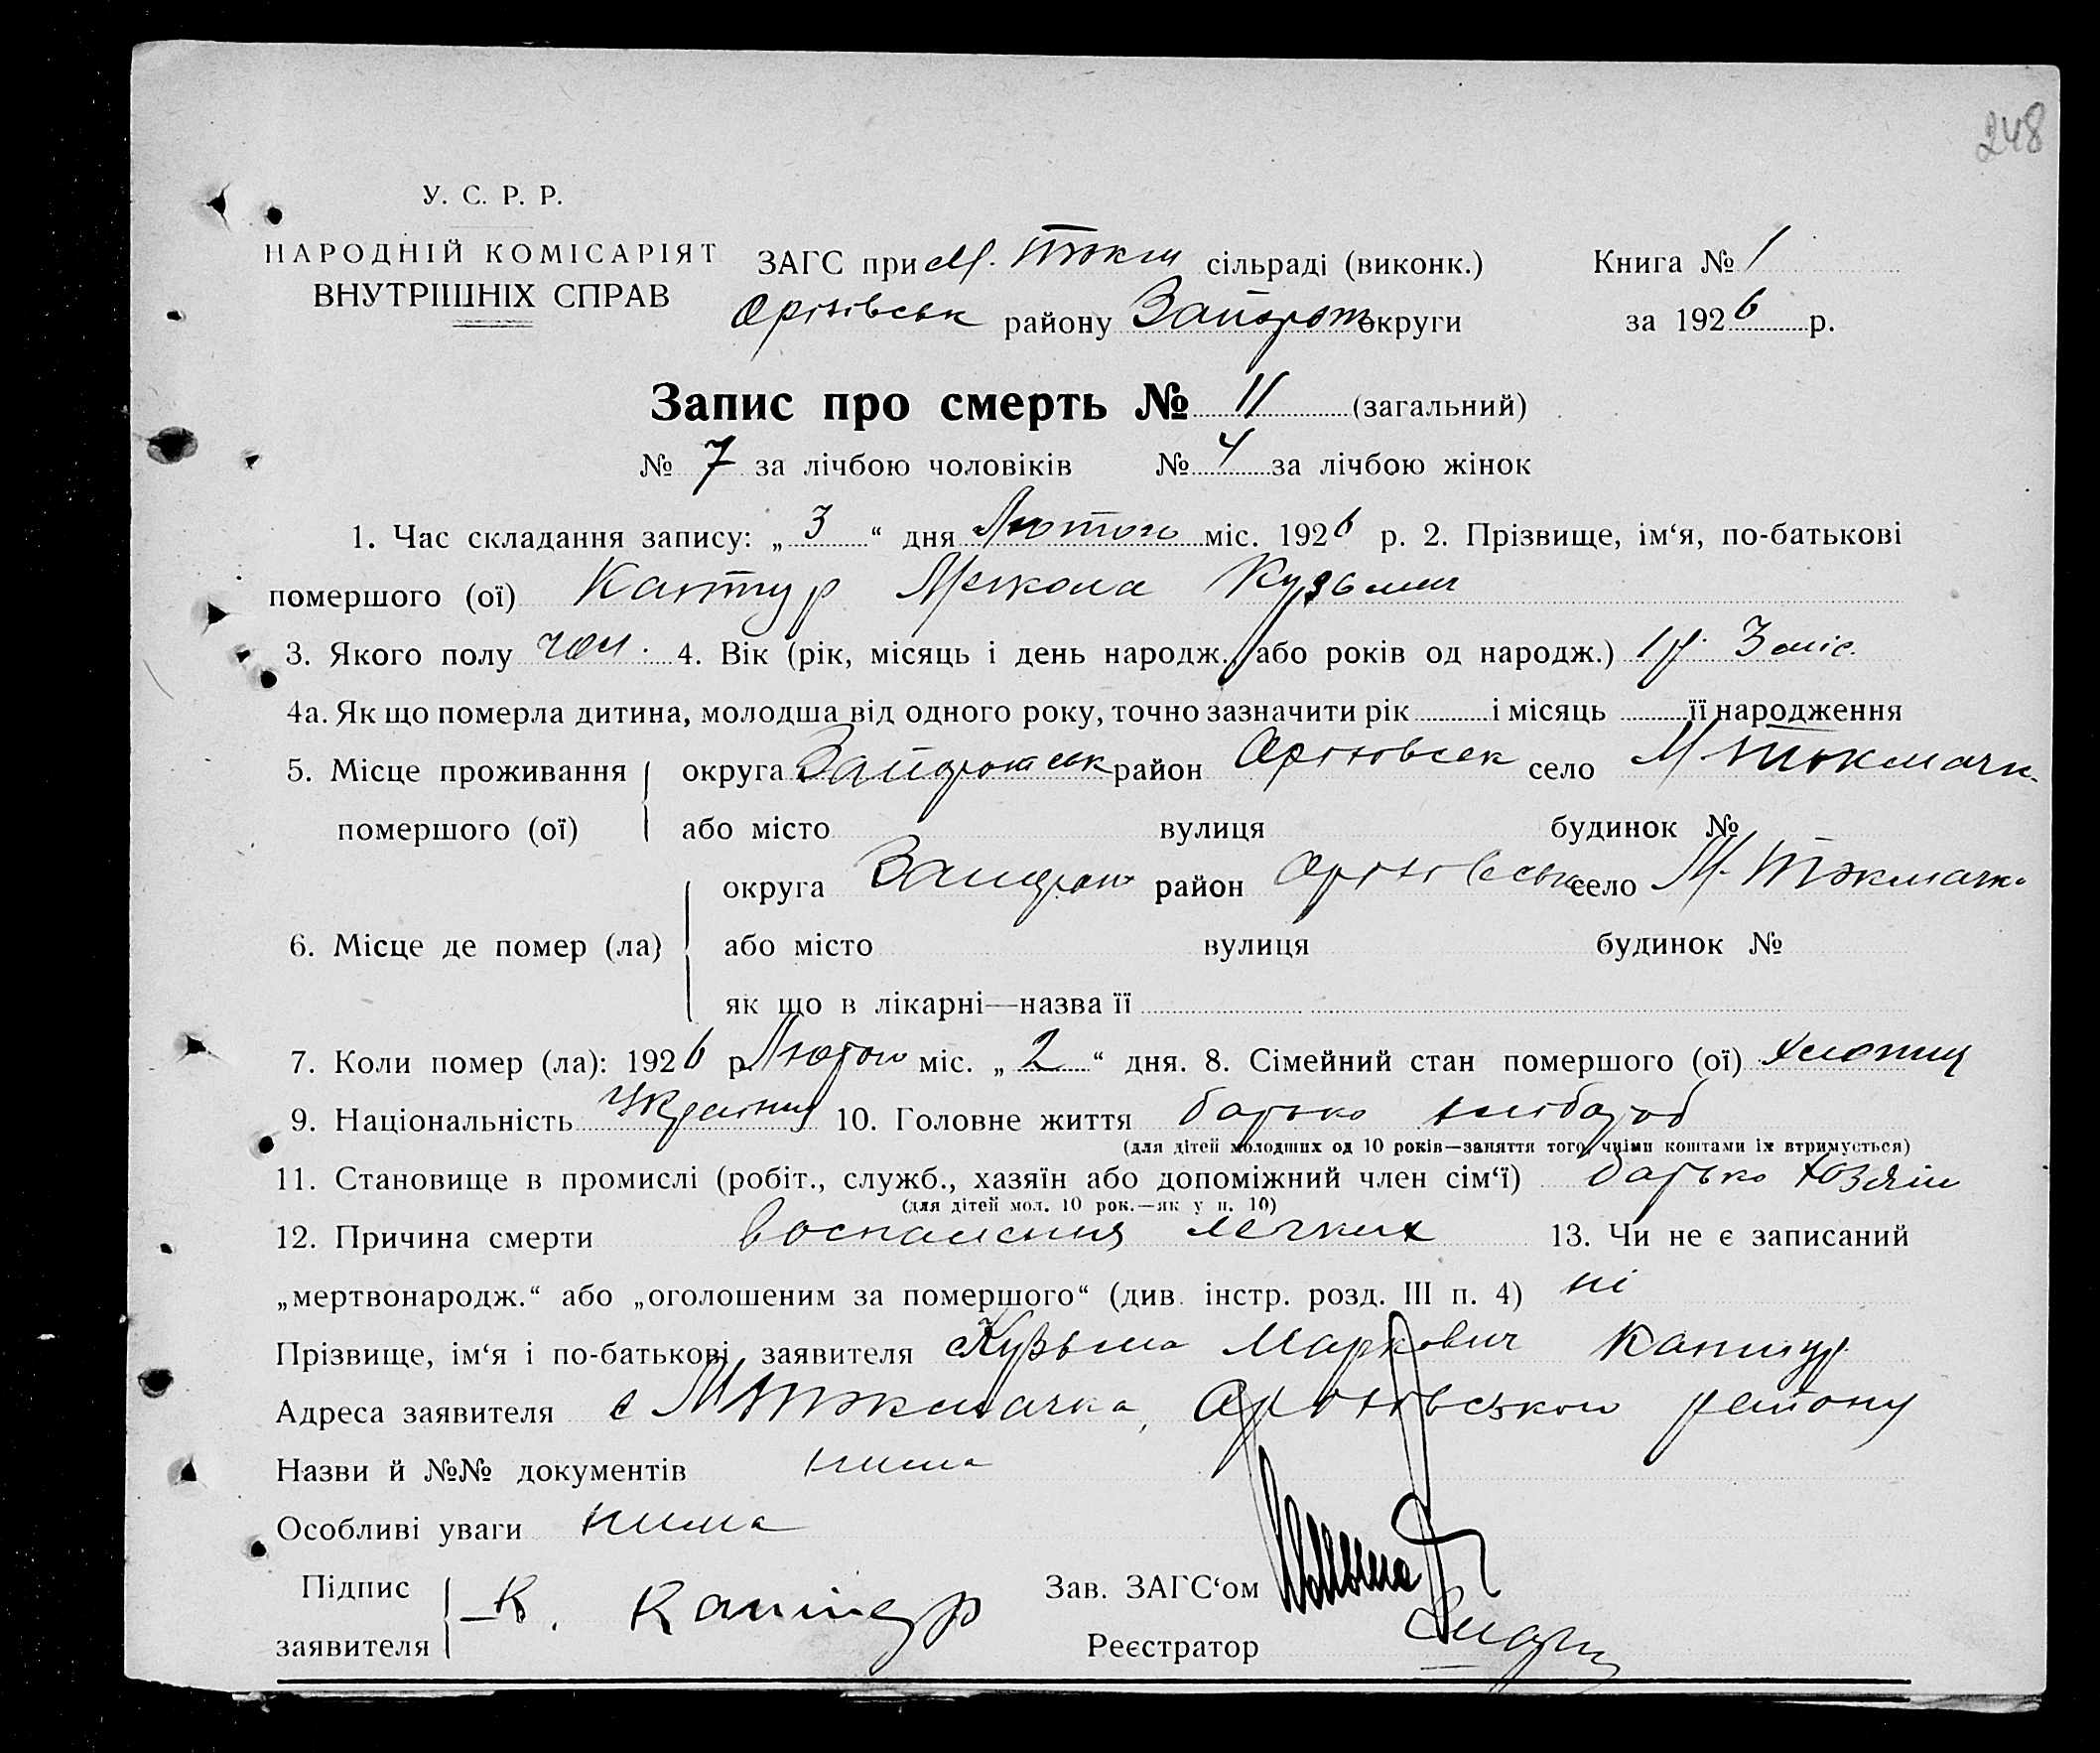 248
У. С. Р. Р.
НАРОДНІЙ КОМІСАРІЯТ
ВНУТРІШНІХ СПРАВ
ЗАГС при М. Токм сільраді (виконк.)
Книга № 1
Оріхівськ району Запорож округи
за 1926 р.
Запис про смерть № 11 (загальний)
№ 7 за лічбою чоловіків № 4 за лічбою жінок
1. Час складання запису: „ 3 “ дня Лютого міс. 1926 р. 2. Прізвище, ім‘я, по-батькові
помершого (ої) Кантур Микола Кузьмич
3. Якого полу чол. 4. Вік (рік, місяць і день народж., або років од народж.) 1 р. 3 міс.
4а. Як що померла дитина, молодша від одного року, точно зазначити рік і місяць її народження
5. Місце проживання округа Запорожськ район Оріхівськ село М Токмачк.
помершого (ої) або місто вулиця будинок №
округа Запорож район Оріхівськ село М. Токмачк.
6. Місце де помер (ла) або місто вулиця будинок №
як що в лікарні—назва її
7. Коли помер (ла): 1926 р. Лютого міс. „ 2 “ дня. 8. Сімейний стан помершого (ої) хлопец
9. Національність 10. Головне життя батько хлібороб
(для дітей молодших од 10 років—заняття того, чиїми коштами їх втримується)
11. Становище в промислі (робіт., служб., хазяїн або допоміжний член сім‘ї) батько хозяін
(для дітей мол. 10 рок.—як у п. 10)
12. Причина смерти воспаления легких 13. Чи не є записаний
„мертвонародж.“ або „оголошеним за помершого“ (див. інстр. розд. III п. 4) ні
Прізвище, ім‘я і по-батькові заявителя Кузьма Маркович Кантур
Адреса заявителя с М Токмачка, Оріхівського району
Назви й №№ документів нима
Особливі уваги нима
Підпис
заявителя К. Кантур
Зав. ЗАГС‘ом
Реєстратор